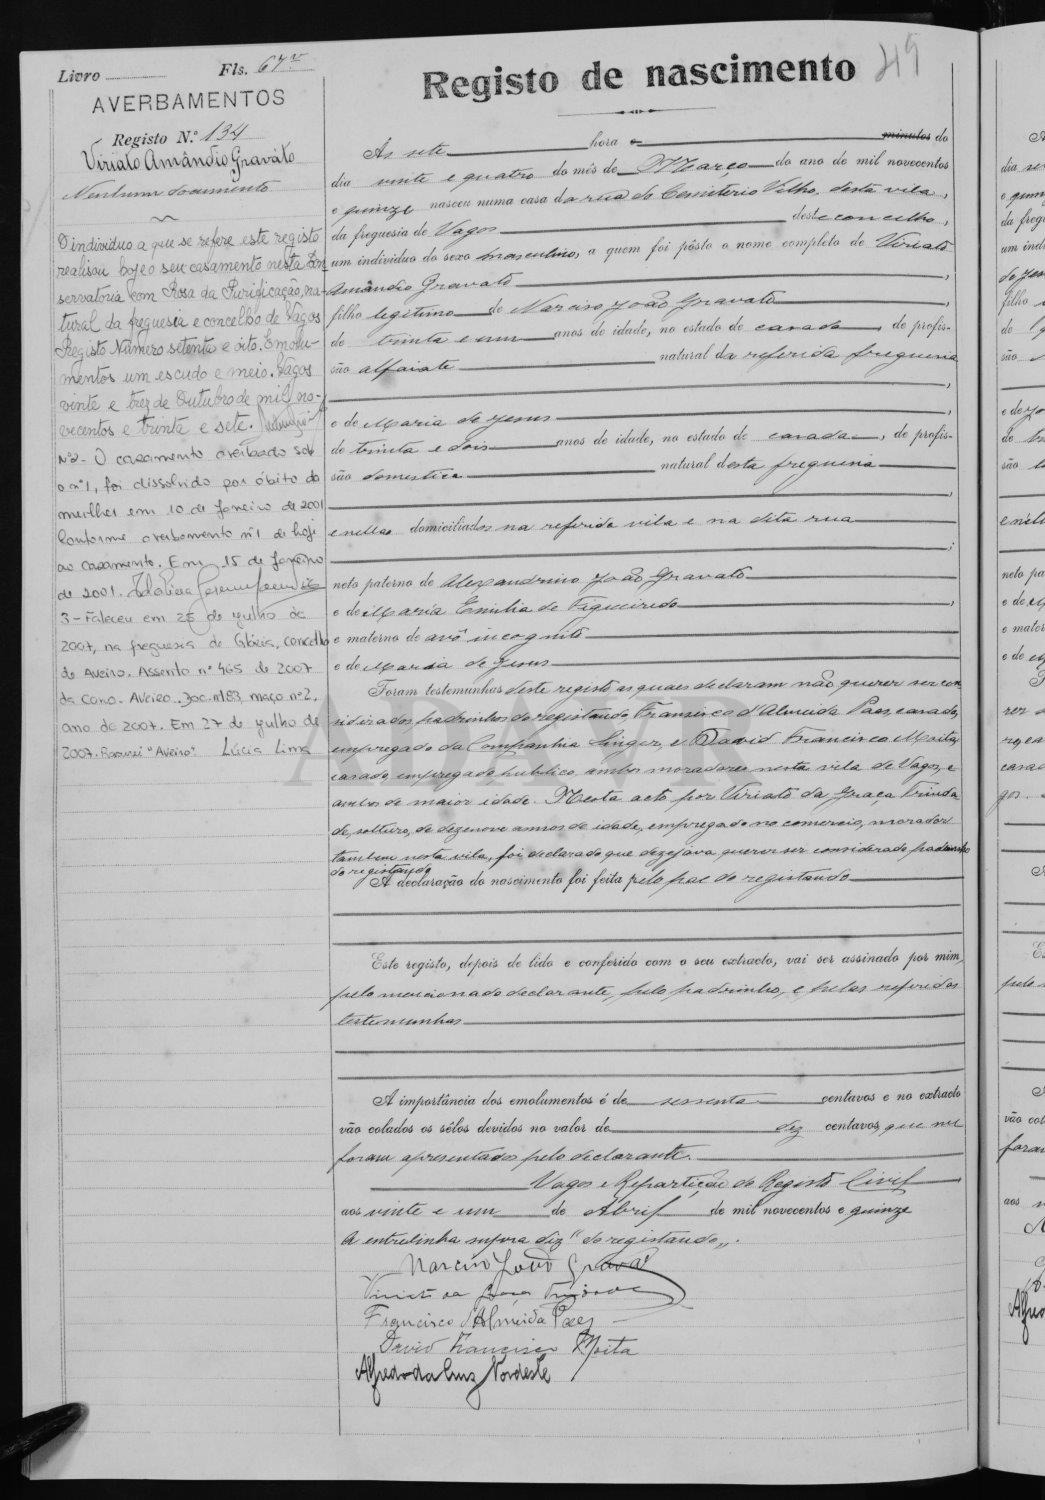 Livro Fls. 67v
AVERBAMENTOS
Registo N.º 134
Viriato Amândio Gravato
Nenhum documento
O individuo a que se refere este registo
realisou hoje o seu casamento nesta Con-
servatoria com Rosa da Purificação, na-
tural da freguesia e concelho de Vagos
Registo Número setenta e oito. Emolu-
mentos um escudo e meio. Vagos
vinte e trez de Outubro de mil no-
vecentos e trinta e sete.
Nº2- O casamento averbado sob
o nº1, foi dissolvido por óbito da
mulher em 10 de Janeiro de 2001
Conforme averbamento nº1 de hoje
ao casamento. Em 15 de Janeiro
de 2001.
3 - Faleceu em 25 de Julho de
2007, na freguesia de Glória, concelho
de Aveiro. Assento nº 465 de 2007
da Cons. Aveiro. Doc. nº183, maço nº2,
ano de 2007. Em 27 de Julho de
2007. "Aveiro" Lúcia Lima
Registo de nascimento 49
Ás sete hora e minutos do
dia vinte e quatro do mês de Março do ano de mil novecentos
e quinze nasceu numa casa da rua do Cemiterio Velho, desta vila,
da freguesia de Vagos deste concelho,
um individuo do sexo masculino, a quem foi pôsto o nome completo de Viriato
Amândio Gravato,
filho legitimo de Narciso João Gravato,
de trinta e um anos de idade, no estado de casado, de profis-
são alfaiate natural da referida freguesia,
e de Maria de Jesus
de trinta e dois anos de idade, no estado de casada, de profis-
são domestica natural desta freguesia,
e nellas domiciliados na referida vila e na dita rua;
neto paterno de Alexandrino João Gravato
e de Maria Emilia de Figueiredo,
e materno de avô incognito
e de Maria de Jesus
Foram testemunhas deste registo as quaes declaram não querer ser con-
siderados padrinhos do registando, Francisco d'Almeida Paes, casado,
empregado da Companhia Singer, e David Francisco Moita,
casado, empregado publico, ambos moradores nesta vila de Vagos, e
ambos de maior idade. Neste acto por Viriato da Graça Trinda
de, solteiro, de dezenove annos de idade, empregado no comercio, morador
tambem nesta vila, foi declarado que dezejava querer ser considerado padrinho
do registando
A declaração do nascimento foi feita pelo pae do registando
Este registo, depois de lido e conferido com o seu extracto, vai ser assinado por mim,
pelo mencionado declarante, pelo padrinho, e pelas referidas
testemunhas
A importância dos emolumentos é de sessenta centavos e no extracto
vão colados os sêlos devidos no valor de dez centavos, que me
foram apresentados pelo declarante.
Vagos e Repartição do Registo Civil
aos vinte e um de Abril de mil novecentos e quinze
A entrelinha supra diz "do registando".
Narciso João Gravato
Viriato da Graça Trindade
Francisco d'Almeida Paes
David Francisco Moita
Alfredo da Cruz Nordeste